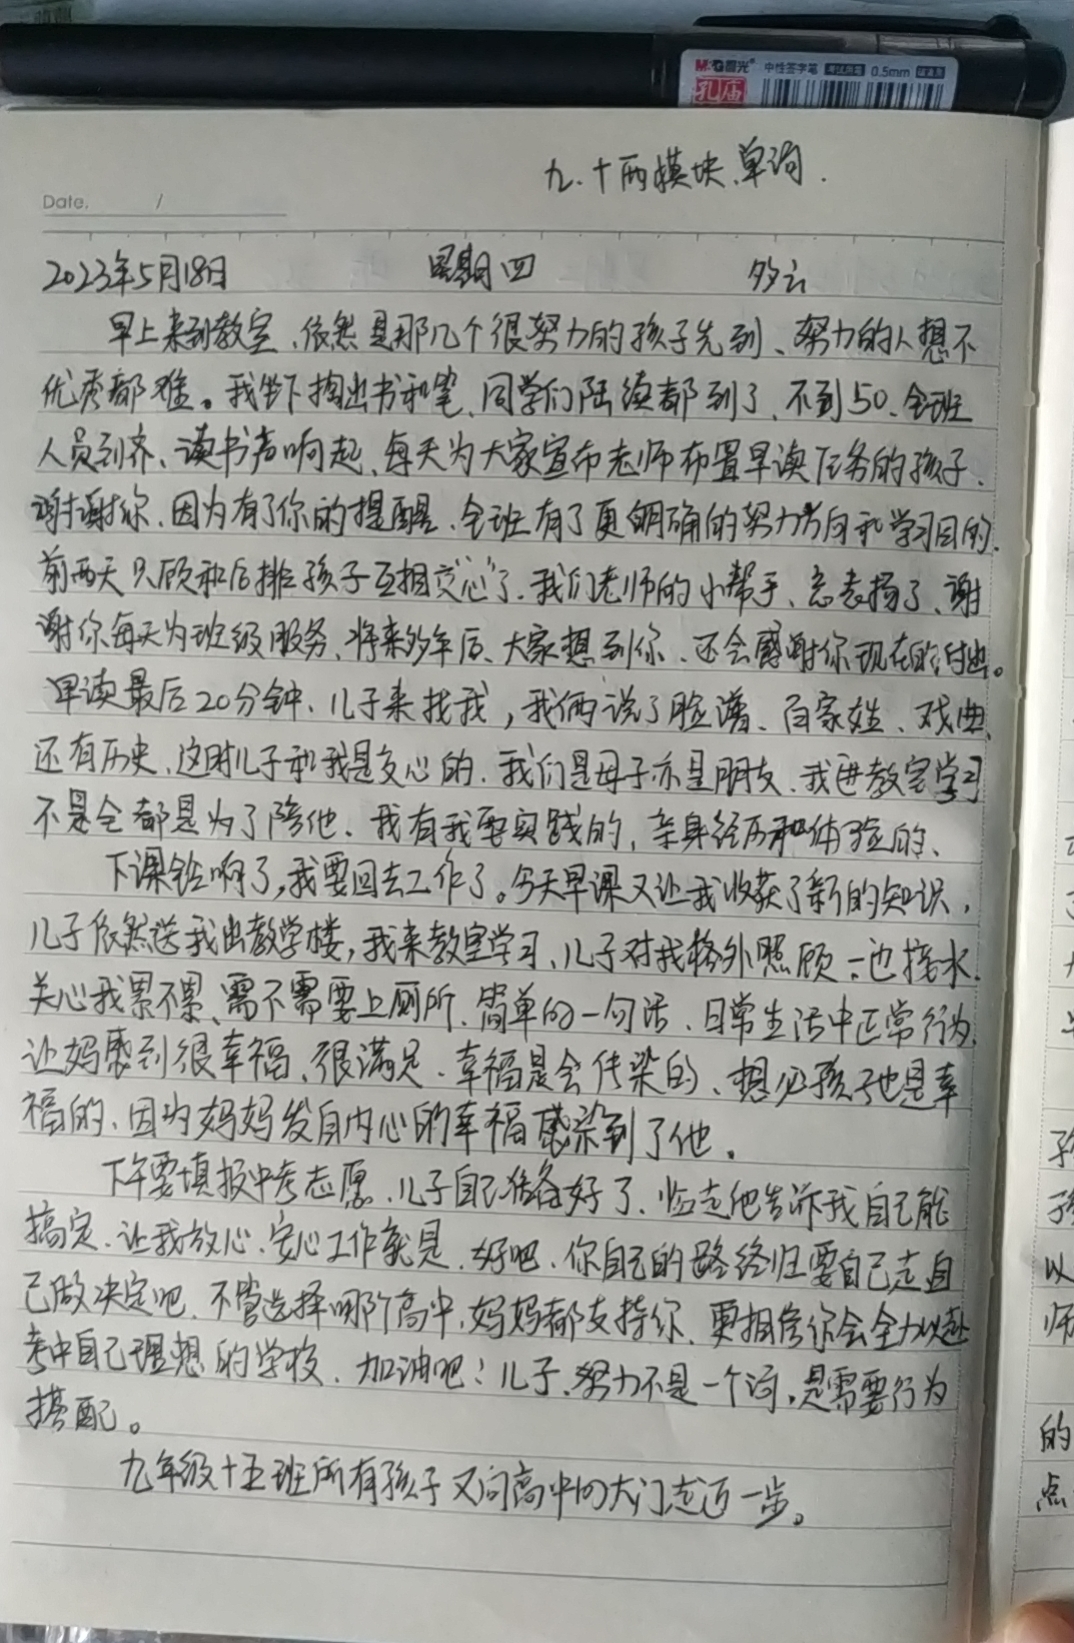 M&G晨光 中性签字笔 考试必备 0.5mm 碳素黑
孔庙
九.十两模块.单词.
Date. /
2023年5月18日 星期四 多云
早上来到教室、依然是那几个很努力的孩子先到、努力的人想不
优秀都难。我坐下掏出书和笔、同学们陆续都到了、不到50、全班
人员到齐、读书声响起、每天为大家宣布老师布置早读任务的孩子、
谢谢你、因为有了你的提醒、全班有了更明确的努力方向和学习目的、
前两天只顾和后排孩子互相交“心”了、我们老师的小帮手、忘表扬了、谢
谢你每天为班级服务、将来多年后、大家想到你、还会感谢你现在的付出。
早读最后20分钟、儿子来找我，我俩说了脸谱、百家姓、戏曲、
还有历史、这时儿子和我是交心的、我们是母子亦是朋友、我进教室学习
不是全都是为了陪他、我有我要实践的，亲身经历和体验的、
下课铃响了，我要回去工作了。今天早课又让我收获了新的知识，
儿子依然送我出教学楼，我来教室学习、儿子对我格外照顾、一边接水、
关心我累不累、需不需要上厕所、简单的一句话、日常生活中正常行为、
让妈感到很幸福、很满足．幸福是会传染的、想必孩子也是幸
福的、因为妈妈发自内心的幸福感染到了他。
下午要填报中考志愿、儿子自己准备好了、临走他告诉我自己能
搞定、让我放心、安心工作就是、好吧、你自己的路终归要自己走自
己做决定吧、不管选择哪个高中、妈妈都支持你、更相信你会全力以赴
考中自己理想的学校、加油吧！儿子、努力不是一个词，是需要行为
搭配。
九年级十五班所有孩子又向高中的大门走近一步。
以
师
的
点